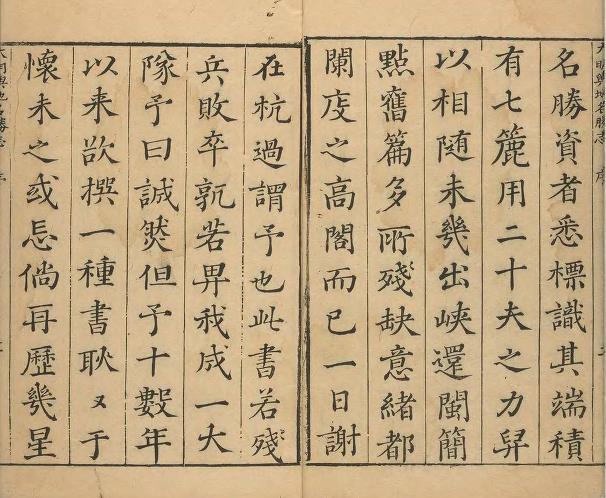 大明輿地名勝志 序
名勝資者悉標識其端積
有七簏用二十夫之力舁
以相隨未幾出峽還閩簡
點舊篇多所殘缺意緒都
闌庋之高閣而已一日謝
在杭過謂予也此書若殘
兵敗卒孰若畀我成一大
隊予曰誠然但予十數年
以来欲撰一種書耿々于
懷未之或忘倘再歷幾星
大明輿地名勝志 序